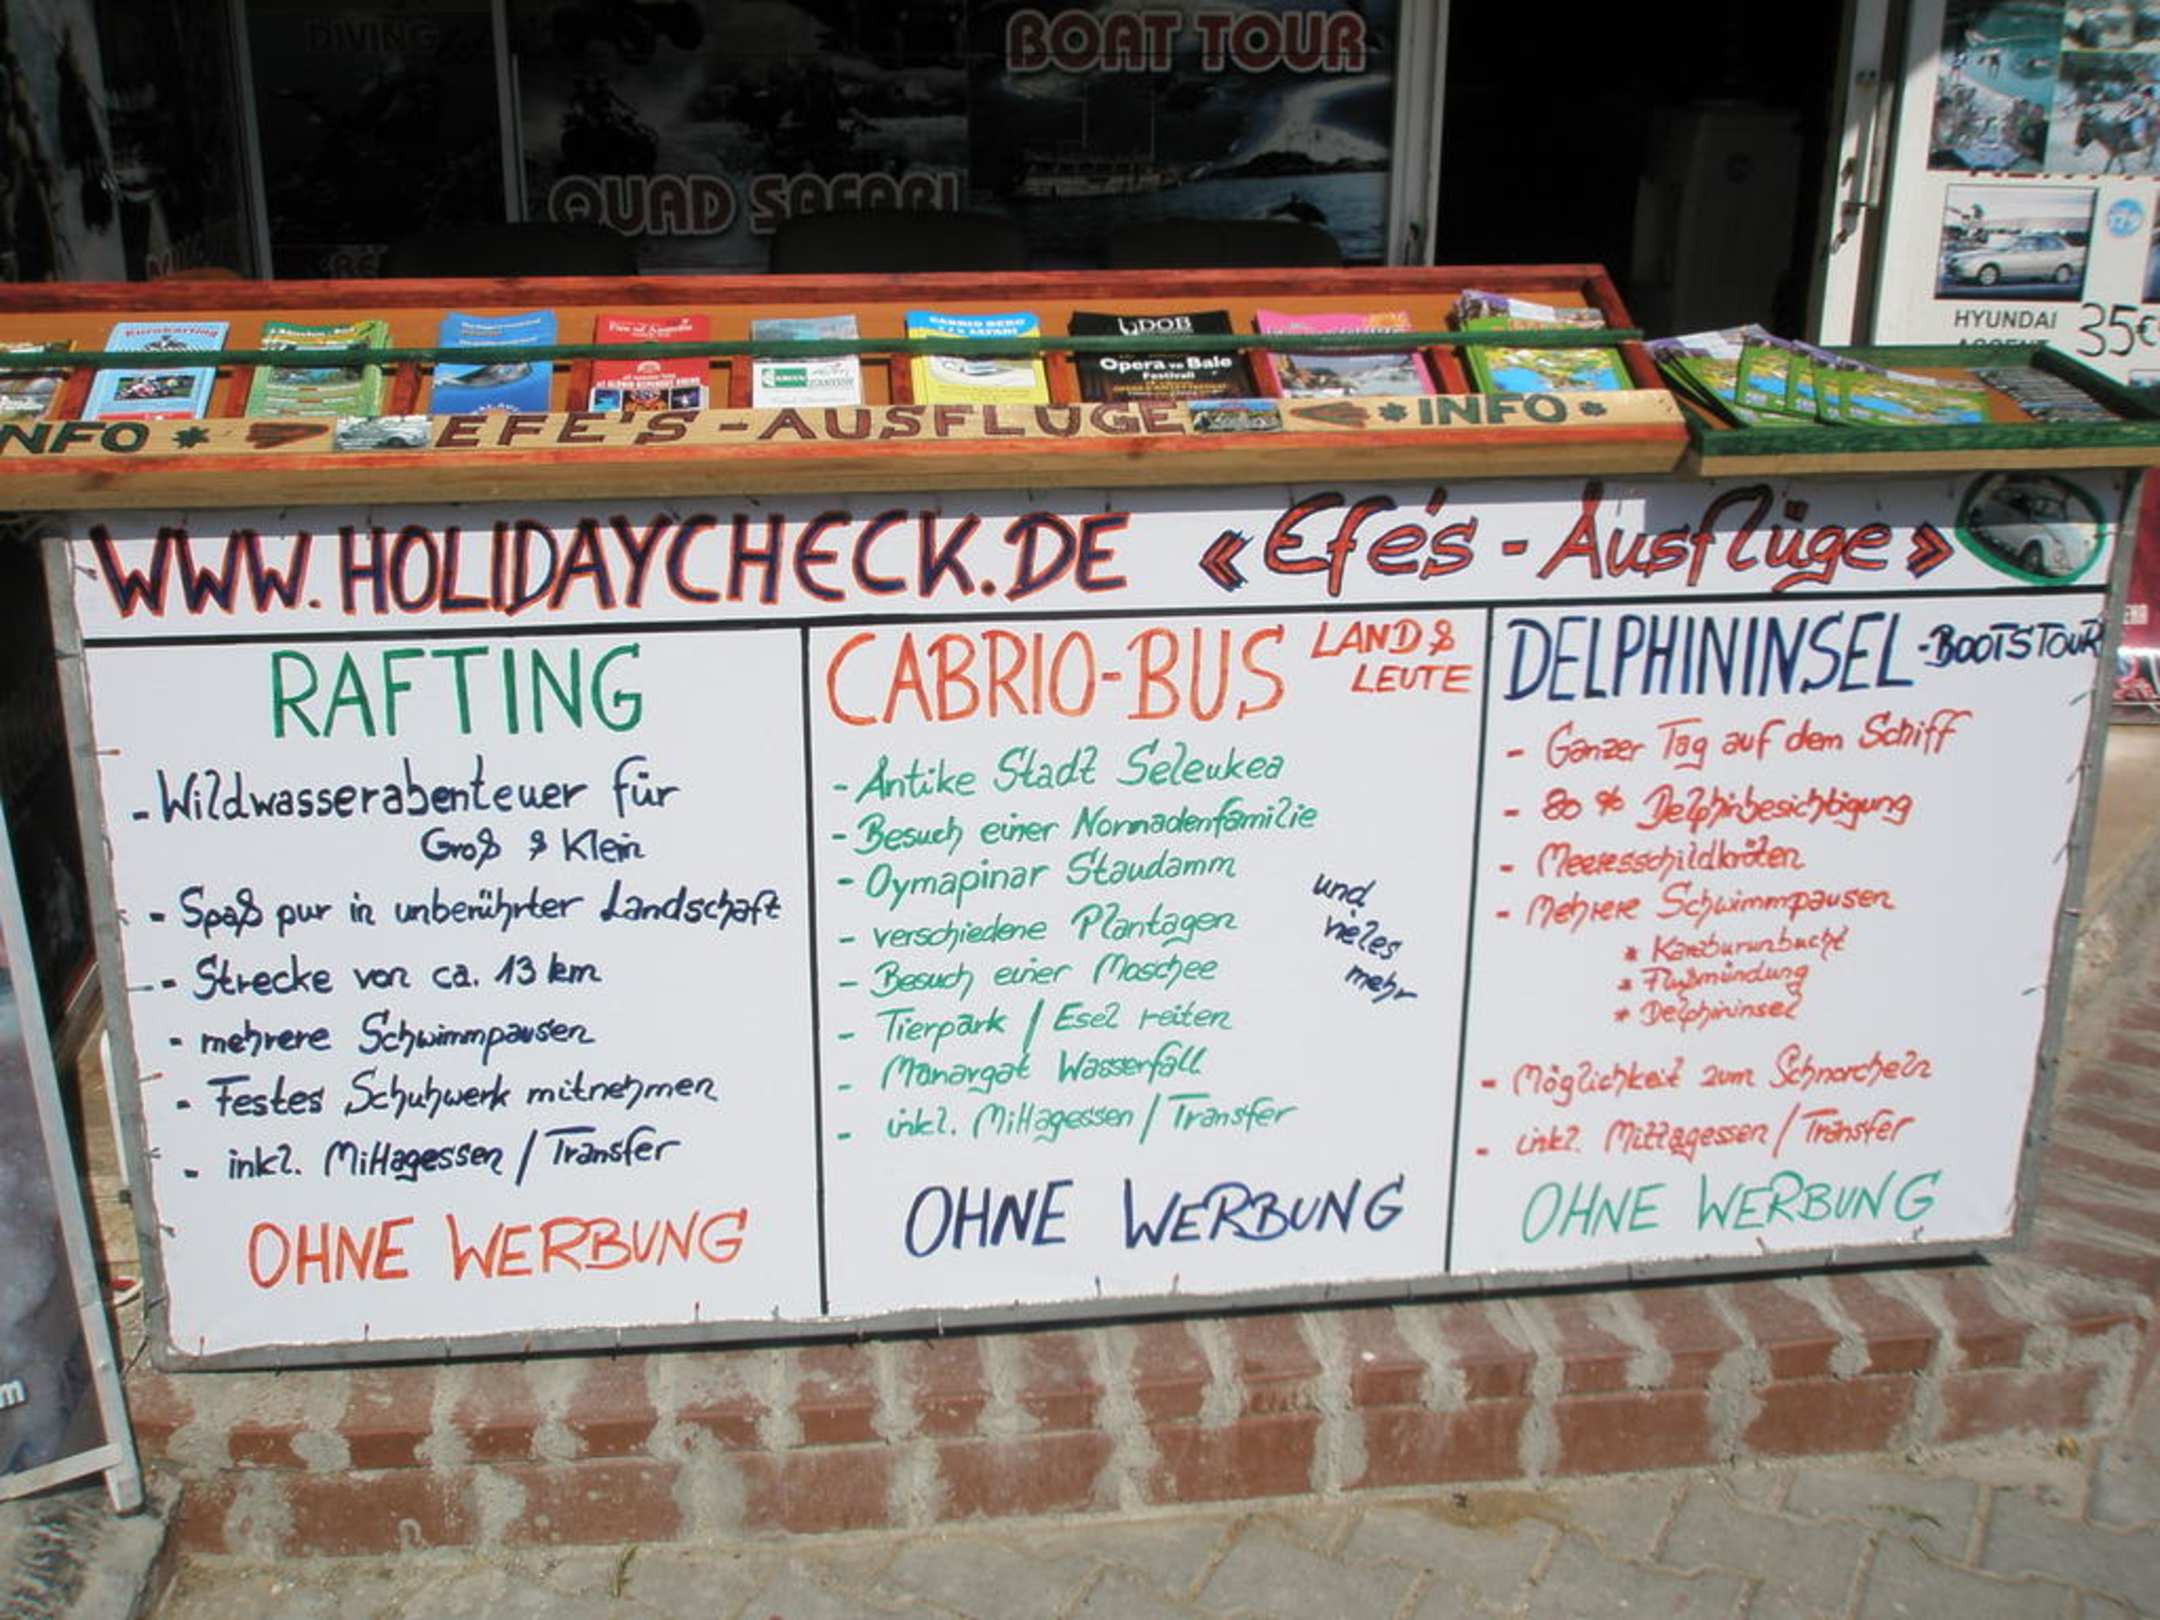 DIVING
BOAT TOUR
QUAD SAFARI
HYUNDAI 35€
ACCENT
Eurokarting
CABRIO
DOB
Opera ve Bale
Festivali
NFO * EFE'S - AUSFLÜGE * INFO *
WWW.HOLIDAYCHECK.DE « Efe's - Ausflüge »
RAFTING
- Wildwasserabenteuer für
Groß & Klein
- Spaß pur in unberührter Landschaft
- Strecke von ca. 13 km
- mehrere Schwimmpausen
- Festes Schuhwerk mitnehmen
- inkl. Mittagessen / Transfer
OHNE WERBUNG
CABRIO-BUS LAND &
LEUTE
- Antike Stadt Seleukea
- Besuch einer Normadenfamilie
- Oymapinar Staudamm
- verschiedene Plantagen
- Besuch einer Moschee
- Tierpark / Esel reiten
- Manavgat Wasserfall
- inkl. Mittagessen / Transfer
und
vieles
mehr
OHNE WERBUNG
DELPHININSEL - BOOTSTOUR
- Ganzer Tag auf dem Schiff
- 80 % Delphinbesichtigung
- Meeresschildkröten
- Mehrere Schwimmpausen
* Karaburunbucht
* Flußmündung
* Delphininsel
- Möglichkeit zum Schnorcheln
- inkl. Mittagessen / Transfer
OHNE WERBUNG